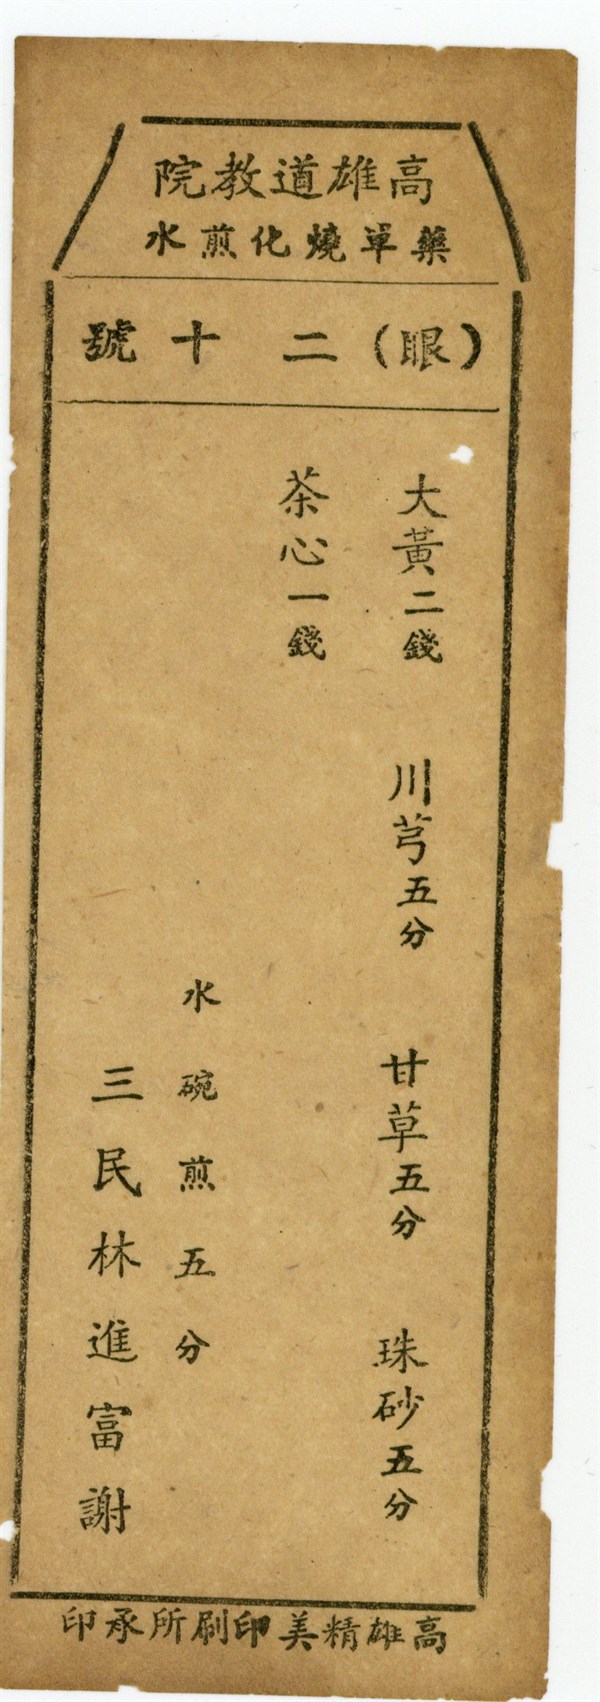 高雄道教院
藥單燒化煎水
（眼）二十號
大黃二錢 川芎五分 甘草五分 珠砂五分
茶心一錢
水碗煎五分
三民林進富謝
高雄精美印刷所承印